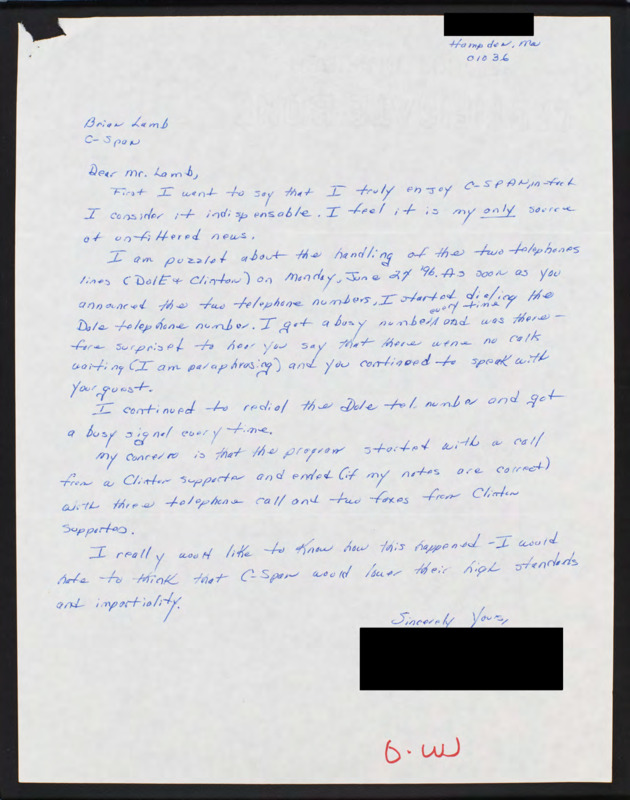 Hampden, Ma
01036
Brian Lamb
C-Span
Dear Mr. Lamb,
First I want to say that I truly enjoy C-SPAN, in-fact
I consider it indispensable. I feel it is my only source
of unfiltered news.
I am puzzled about the handling of the two telephones
lines (DolE & Clinton) on Monday, June 24 '96. As soon as you
announced the two telephone numbers, I started dialing the
Dole telephone number. I got a busy number every time and was there-
fore surprised to hear you say that there were no calls
waiting (I am paraphrasing) and you continued to speak with
your guest.
I continued to redial the Dole tel. number and got
a busy signal every time.
My concern is that the program started with a call
from a Clinton supporter and ended (if my notes are correct)
with three telephone call and two faxes from Clinton
supporters.
I really would like to know how this happened - I would
hate to think that C-Span would lower their high standards
and impartiality.
Sincerely Yours,